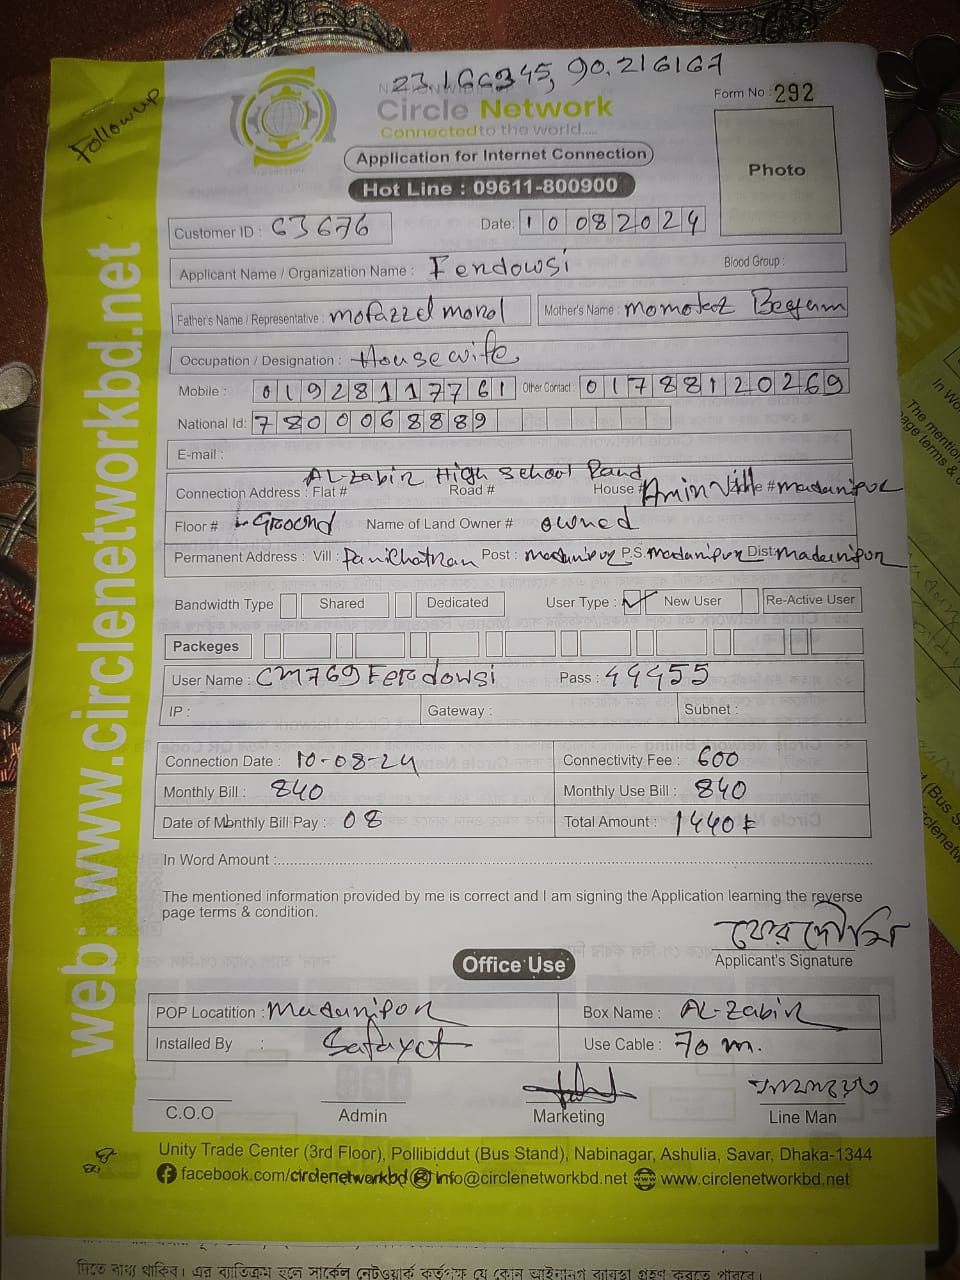 23.166345, 90.216167
Follow up
Circle Network
Connected to the world.....
Form No : 292
Application for Internet Connection
Photo
Hot Line : 09611-800900
Customer ID : 63676 Date: 10082024
Applicant Name / Organization Name : Ferdowsi Blood Group :
Father's Name / Representative : mofazzel morol Mother's Name : momotaz Begum
Occupation / Designation : Housewife
Mobile : 01928117761 Other Contact : 01788120269
National Id: 7800068889
E-mail :
AL-zabir High School Road
Connection Address : Flat # Road # House # Amin Ville # madanipur
Floor # Ground Name of Land Owner # owned
Permanent Address : Vill : Panichatran Post : madanipur P.S. madanipur Dist: madanipor
Bandwidth Type Shared Dedicated User Type : New User Re-Active User
Packeges
User Name : CM769Ferdowsi Pass : 44455
IP : Gateway : Subnet :
Connection Date : 10-08-24 Connectivity Fee : 600
Monthly Bill : 840 Monthly Use Bill : 840
Date of Monthly Bill Pay : 08 Total Amount : 1440
In Word Amount :
The mentioned information provided by me is correct and I am signing the Application learning the reverse
page terms & condition.
ফেরদৌসি
Applicant's Signature
Office Use
POP Locatition : Madanipor Box Name : AL-Zabir
Installed By : Safayet Use Cable : 70 m.
C.O.O Admin Marketing Line Man
Unity Trade Center (3rd Floor), Pollibiddut (Bus Stand), Nabinagar, Ashulia, Savar, Dhaka-1344
facebook.com/circlenetworkbd info@circlenetworkbd.net www.circlenetworkbd.net
web: www.circlenetworkbd.net